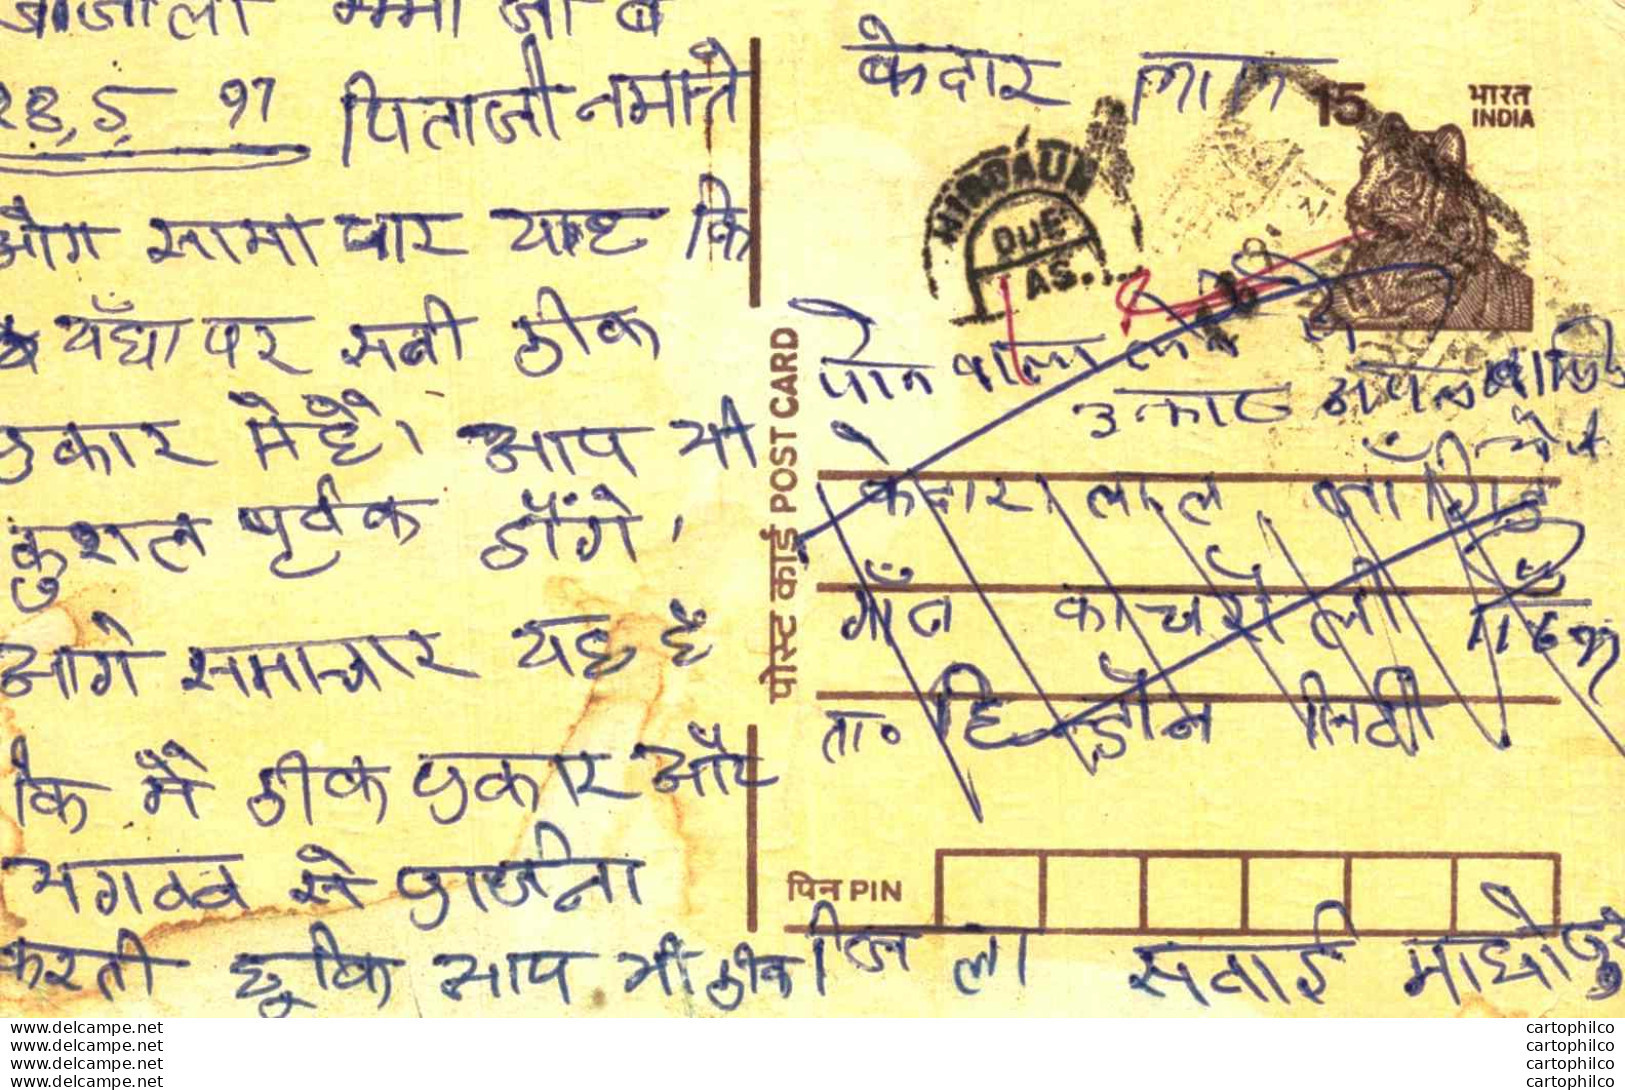 मम्मी जी व
28,5, 97 पिताजी नमास्ते
औग सामा चार याह कि
यँघा पर सबी ठीक
प्रकार मेहै। आप भी
कुशल पूर्वक होंगे,
आगे समाचार यह है
कि मै ठीक प्रकार औंर
भगवव से प्रार्थना
करती हू कि आप भी ठीक
पोस्ट कार्ड POST CARD
केदार लाल
15 भारत
INDIA
HINDAUN
DUE
AS.
केदार लाल
गाँव काचरोली
11 6 97
ता० हिन्डौन सिटी
पिन PIN
जिला सवाई माधोपुर
www.delcampe.net
www.delcampe.net
www.delcampe.net
www.delcampe.net
cartophilco
cartophilco
cartophilco
cartophilco